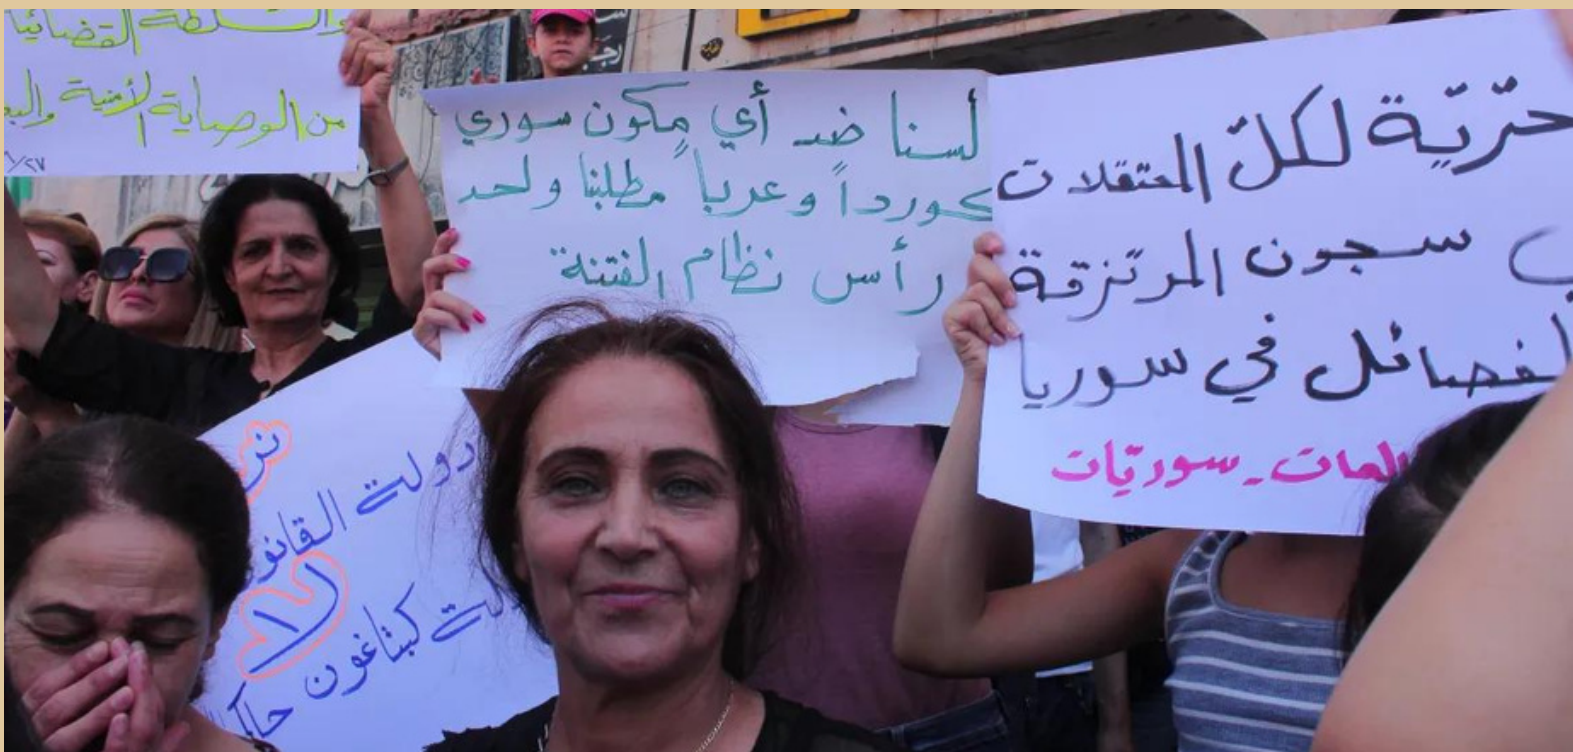 والسلطة القضائية
من الوصاية الأمنية
لسنا ضد أي مكون سوري
كورداً وعرباً مطلبنا واحد
رأس نظام الفتنة
حرّيّة لكلّ المعتقلات
سجون المرتزقة
لفصائل في سوريا
سوريّات
دولت القانو
لا
كبتاغون